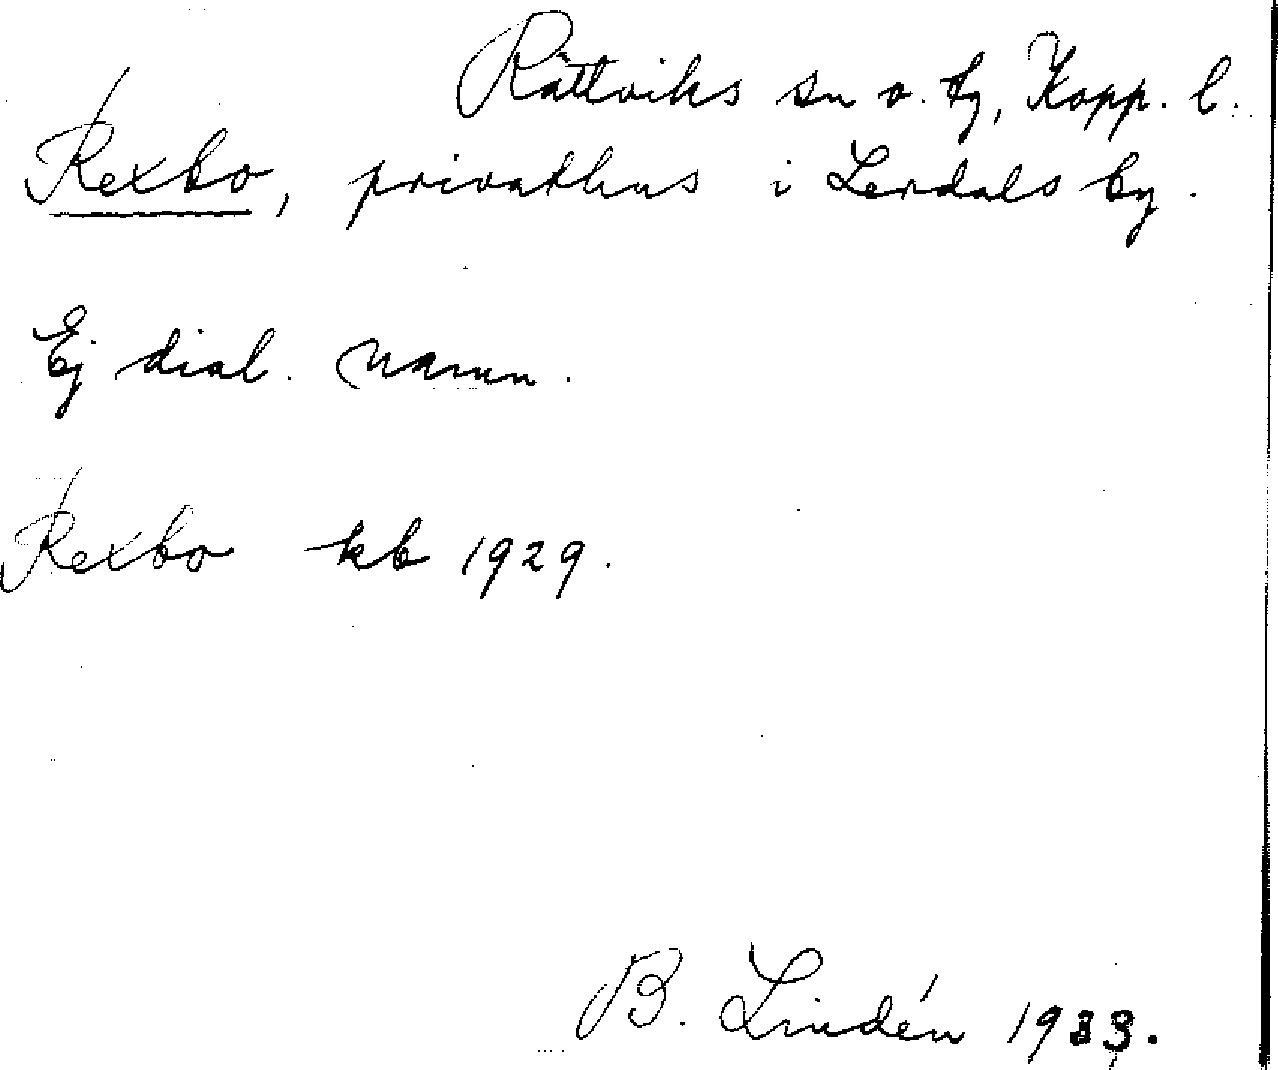 Rättviks sn o. tg, Kopp. l.
Rexbo, privathus i Lerdals by.
Ej dial. namn.
Rexbo kb 1929.
B. Lindén 1933.